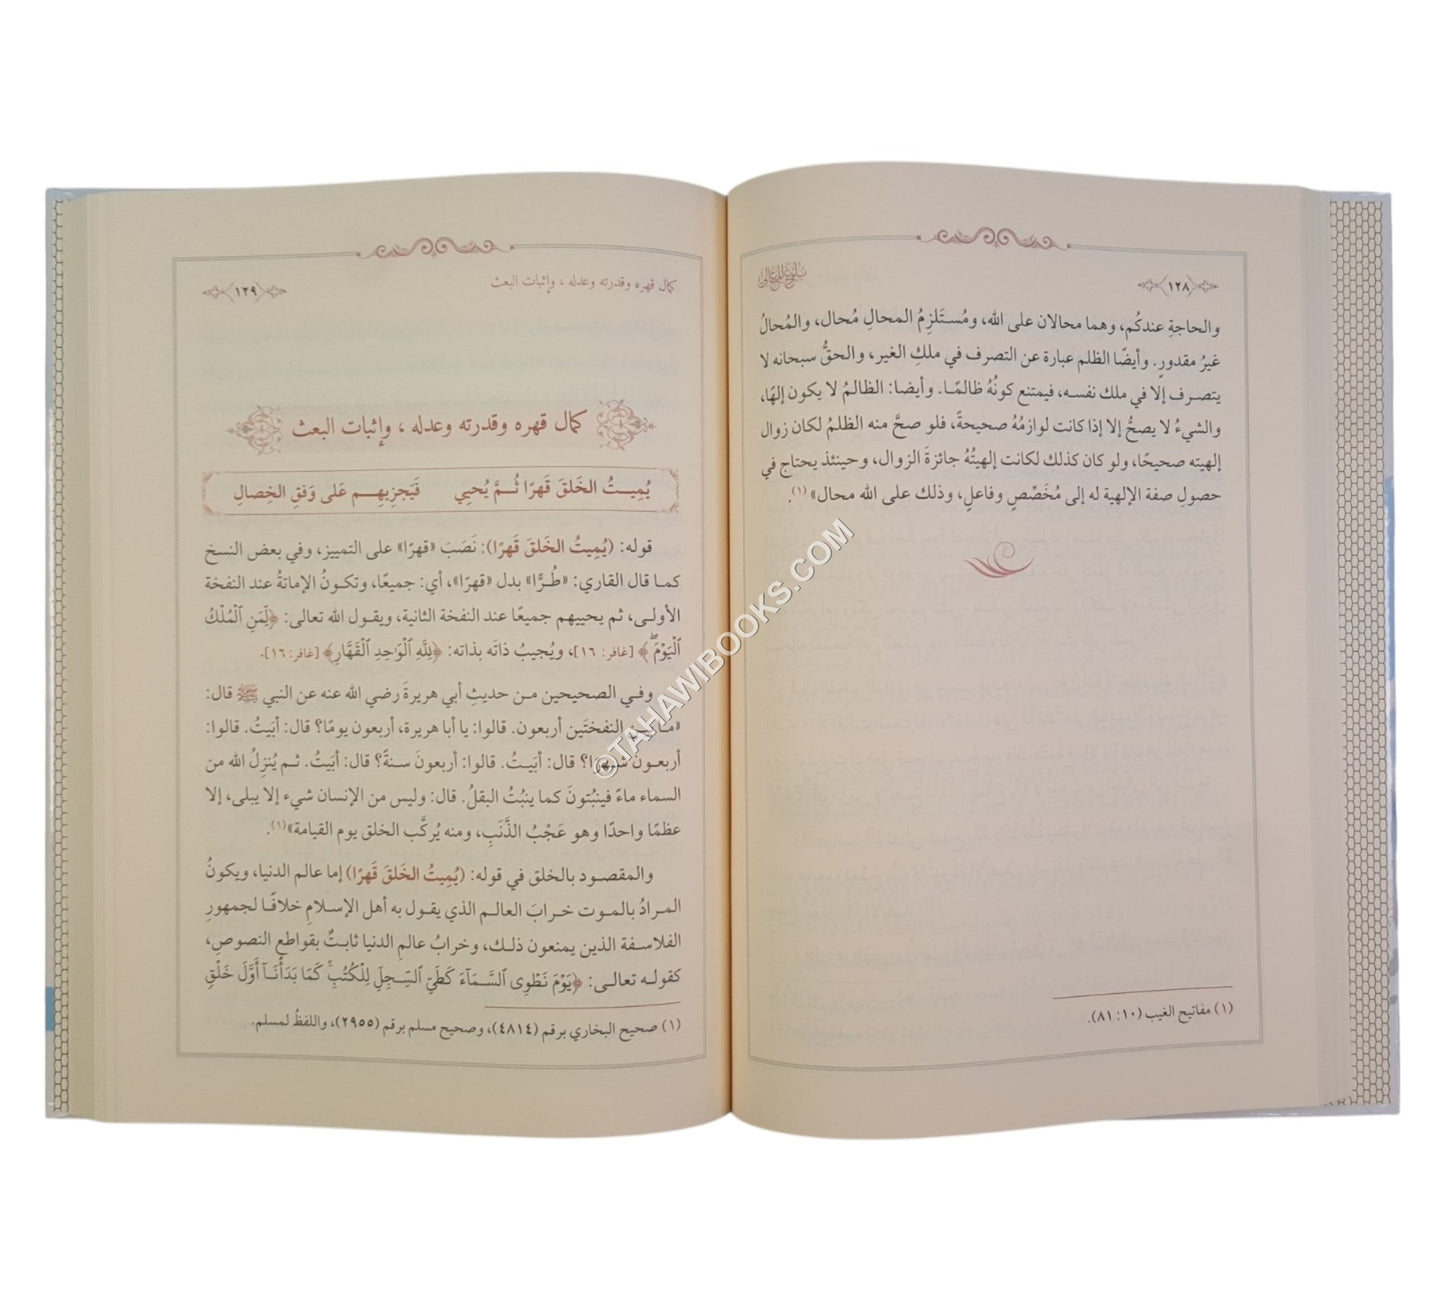 ﴿١٢٨﴾
والحاجةِ عندكُم، وهما محالان على الله، ومُستَلزِمُ المحالِ مُحال، والمُحالُ
غيرُ مقدورٍ. وأيضًا الظلم عبارة عن التصرف في ملكِ الغير، والحقُّ سبحانه لا
يتصرف إلا في ملك نفسه، فيمتنع كونُهُ ظالمًا. وأيضا: الظالمُ لا يكون إلهًا،
والشيءُ لا يصحُّ إلا إذا كانت لوازمُهُ صحيحةً، فلو صحَّ منه الظلمُ لكان زوال
إلهيته صحيحًا، ولو كان كذلك لكانت إلهيتُهُ جائزةَ الزوال، وحينئذ يحتاج في
حصولِ صفة الإلهية له إلى مُخَصِّصٍ وفاعلٍ، وذلك على الله محال» (١).
(١) مفاتيح الغيب (١٠: ٨١).
كمال قهره وقدرته وعدله ، وإثبات البعث
﴿١٢٩﴾
كمال قهره وقدرته وعدله ، وإثبات البعث
يُمِيتُ الخَلقَ قَهرًا ثُمَّ يُحيِي فَيَجزِيهِم عَلى وَفقِ الخِصالِ
قوله: (يُمِيتُ الخَلقَ قَهرًا): نَصَبَ «قهرًا» على التمييز، وفي بعض النسخ
كما قال القاري: «طُرًّا» بدل «قهرًا»، أي: جميعًا، وتكونُ الإماتةُ عند النفخة
الأولى، ثم يحييهم جميعًا عند النفخة الثانية، ويقول الله تعالى: ﴿لِّمَنِ ٱلۡمُلۡكُ
ٱلۡيَوۡمَۖ﴾ [غافر: ١٦]، ويُجيبُ ذاتَه بذاته: ﴿لِلَّهِ ٱلۡوَٰحِدِ ٱلۡقَهَّارِ﴾ [غافر: ١٦].
وفي الصحيحين من حديثِ أبي هريرةَ رضي الله عنه عن النبي ﷺ قال:
«ما بين النفختَين أربعون. قالوا: يا أبا هريرة، أربعون يومًا؟ قال: أبَيتُ. قالوا:
أربعونَ شهرًا؟ قال: أبَيتُ. قالوا: أربعونَ سنةً؟ قال: أبَيتُ. ثم يُنزِلُ الله من
السماء ماءً فينبُتونَ كما ينبُتُ البقلُ. قال: وليس من الإنسان شيء إلا يبلى، إلا
عظمًا واحدًا وهو عَجْبُ الذَّنَبِ، ومنه يُركَّب الخلق يوم القيامة»(١).
والمقصود بالخلق في قوله: (يُمِيتُ الخَلقَ قَهرًا) إما عالم الدنيا، ويكونُ
المرادُ بالموت خرابَ العالم الذي يقول به أهل الإسلامِ خلافًا لجمهورِ
الفلاسفة الذين يمنعون ذلك، وخرابُ عالمِ الدنيا ثابتٌ بقواطعِ النصوصِ،
كقوله تعالى: ﴿يَوۡمَ نَطۡوِي ٱلسَّمَآءَ كَطَيِّ ٱلسِّجِلِّ لِلۡكُتُبِۚ كَمَا بَدَأۡنَآ أَوَّلَ خَلۡقٖ
(١) صحيح البخاري برقم (٤٨١٤)، وصحيح مسلم برقم (٢٩٥٥)، واللفظُ لمسلم.
©TAHAWIBOOKS.COM